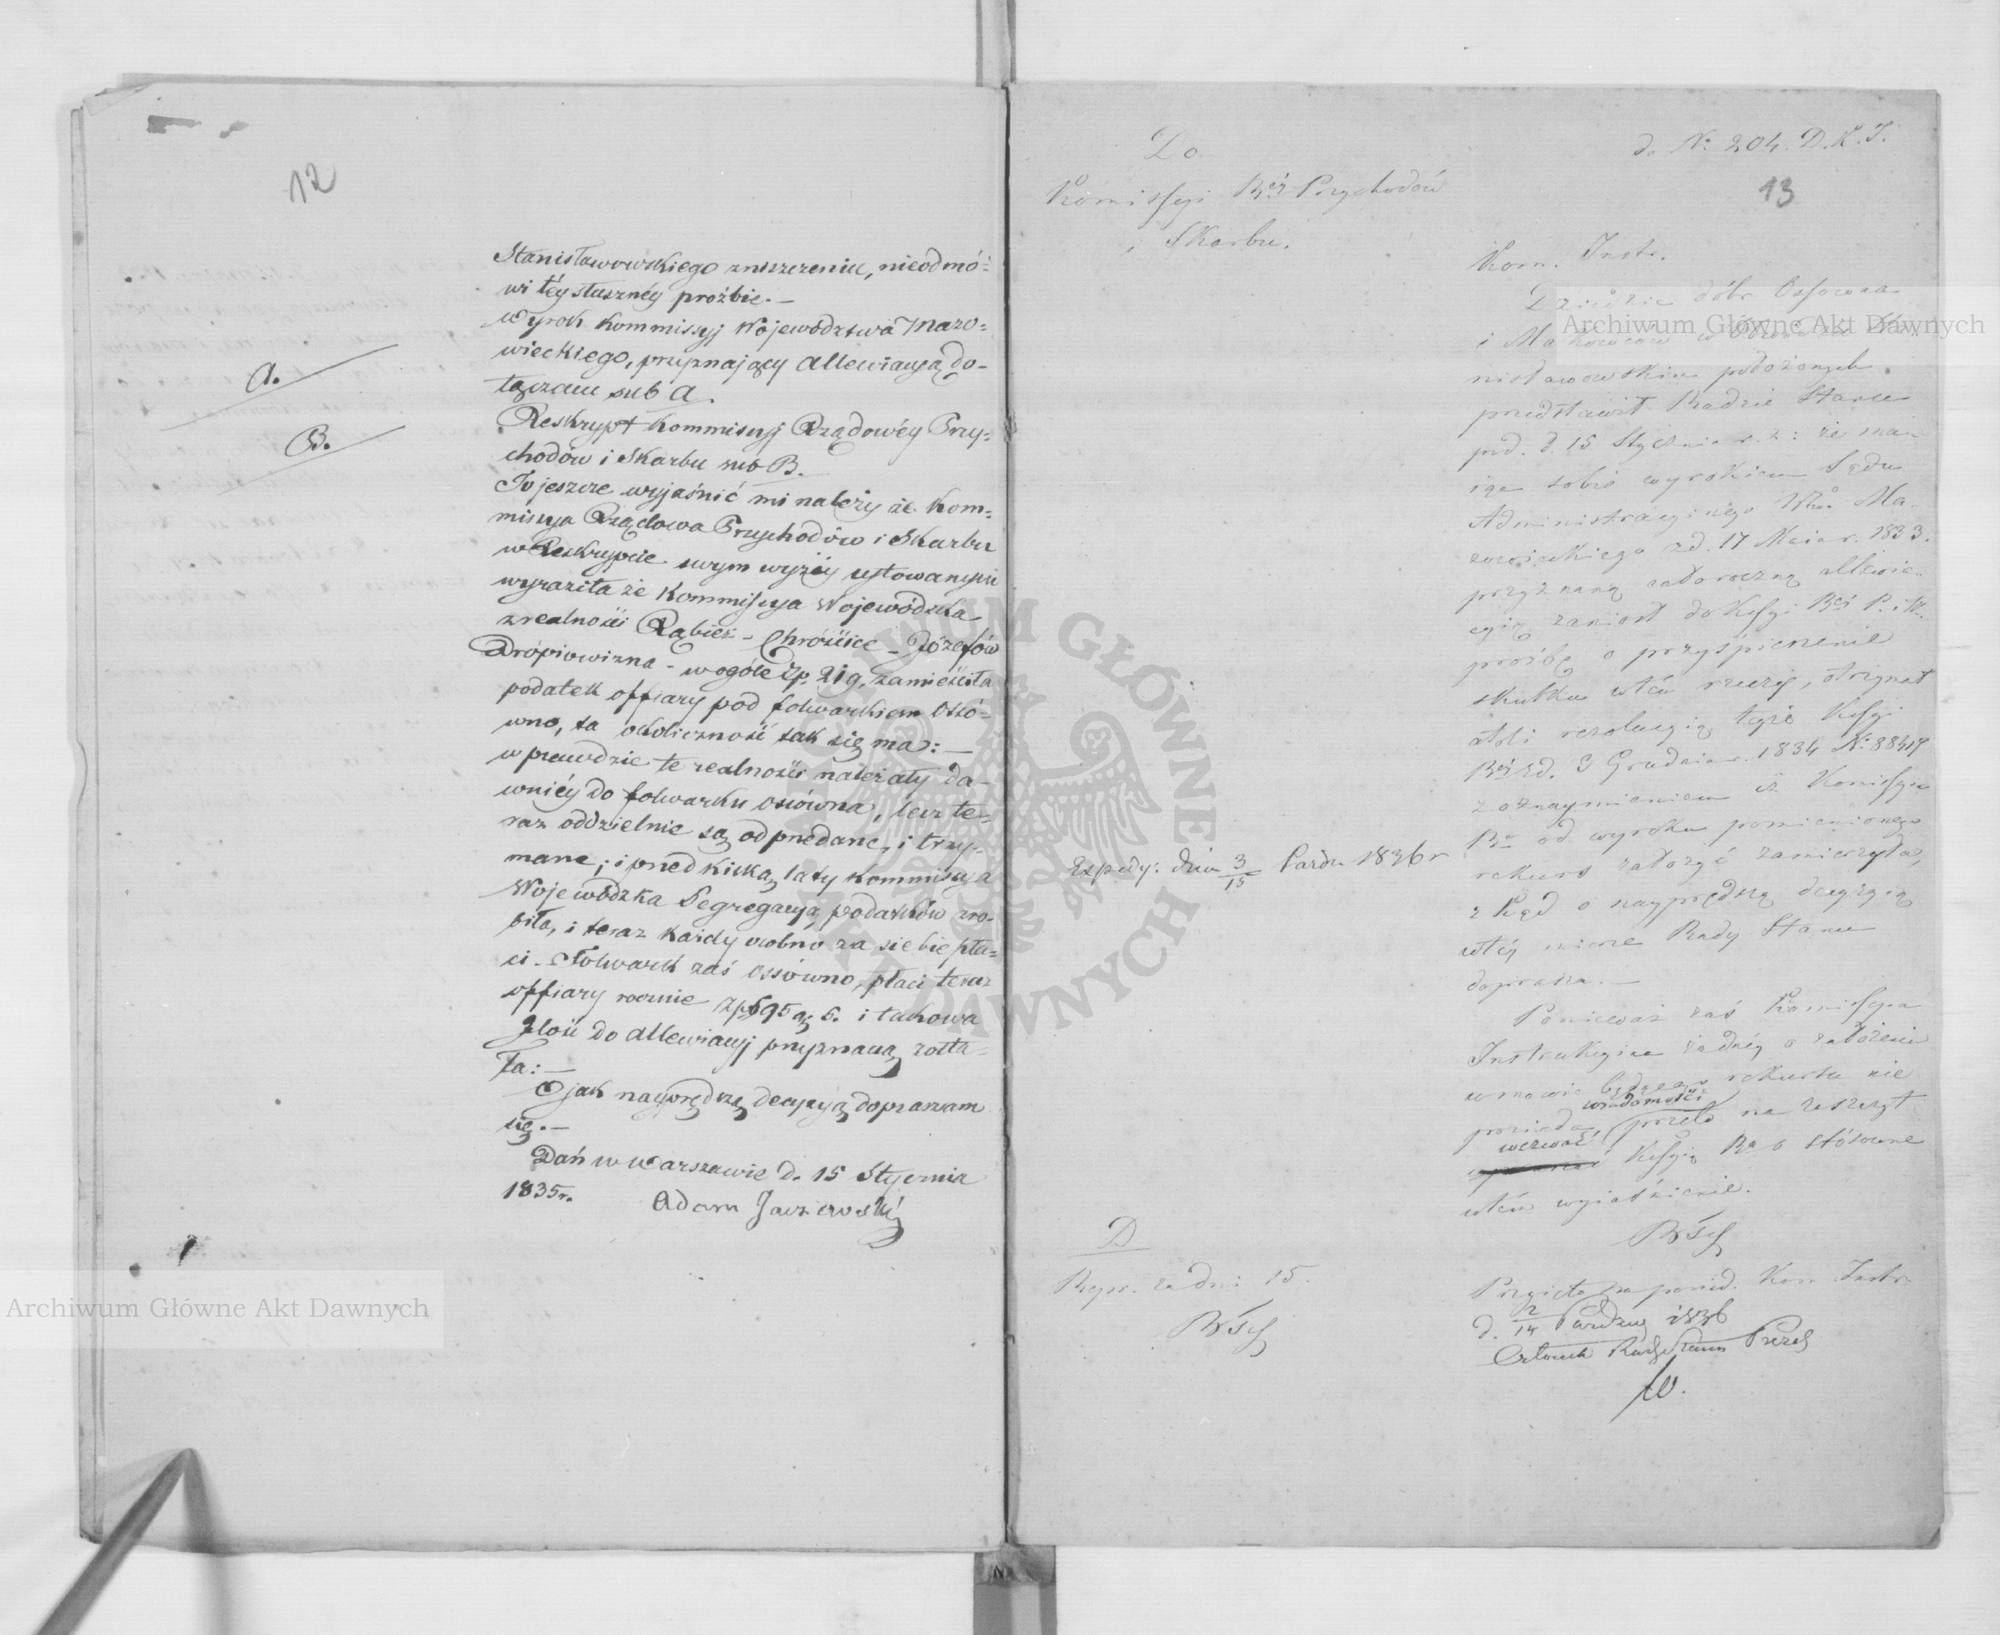 12
Stanisławowskiego zniszczeniu, nieodmó-
wi téy słusznéy proźbie.—
Wyrok Kommissyj Województwa Mazo-
wieckiego, przyznający allewiacyą do-
łączam sub A.
A.
Reskrypt Kommissyj Rządowéy Przy-
chodów i Skarbu sub B.
B.
To jeszcze wyjaśnić mi należy że Kom-
missya Rządowa Przychodów i Skarbu
w Reskrypcie swym wyżéy cytowanym
wyraziła że Kommissya Wojewódzka
z realności Rąbież – Chrościce – Józefów
Dropiowizna – w ogóle Zp. 219, zamieściła
podatek offiary pod folwarkiem Ossó-
wno, ta okoliczność tak się ma:—
w prawdzie te realności należały da-
wniéy do folwarku Ossówna, lecz te-
raz oddzielnie są odprzedane, i trzy-
mane; i przed kilką laty Kommissya
Wojewódzka Segregacyą podatków zro-
biła, i teraz każdy osobno za siebie pła-
ci – Folwark zaś Ossówno, płaci teraz
offiary rocznie Zp 595 g. 6. i takowa
Ilość do allewiacyj przyznaną zosta-
ła:—
O jak nayprędszą decyzyą dopraszam
się.—
Dań w Warszawie d. 15 Stycznia
1835 r.
Adam Jaczewski
d. No. 204. D.K.I.
13
Do
Komissyi Rząd. Przychodów
i Skarbu.
Kom. Instr.
Dziedzic dóbr Ossowna
i Makowca w Obwodzie Sta-
nisławowskim położonych
przedstawił Radzie Stanu
pod d. 15 Stycznia r. z: że ma-
iąc sobie wyrokiem Sądu
Administracyinego Wdz. Ma-
zowieckiego z d. 17 Maia r. 1833.
przyznaną całoroczną allewia-
cyią zaniosł do Kssyi Rząd P. i S.
prośbę o przyśpieszenie
skutku w téy rzeczy, otrzymał
atoli rezolucyią teyże Kssyi
Rząd z d. 3 Grudnia r. 1834 No. 88419
z oznaymieniem iż Komissya
Rz. od wyroku pomienionego
rekurs założyć zamierzyła,
z kąd o nayprędszą decyzyą
w téy mierze Rady Stanu
doprasza.—
Expedy: dnia 3/15 Paźdz. 1836 r
Ponieważ zaś Komissya
Instrukcyina żadnéy o założeniu
w mowie będącego rekursu nie
posiada wiadomości, przeto na zeszyt
wezwać Kssyią Rz. o stósowne
w téy wyiaśnienie.
D
Repr. za dni 15.
Przyięto na posied. Kom. Instr.
d. 2/14 Paździer 1836
Członek Rady Stanu Prezes
W.
Archiwum Główne Akt Dawnych
Archiwum Główne Akt Dawnych
ARCHIWUM GŁÓWNE AKT DAWNYCH